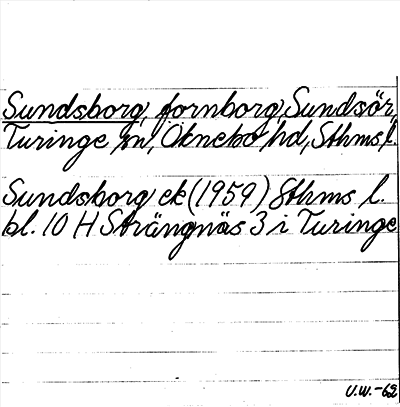 Sundsborg, fornborg, Sundsör,
Turinge sn, Öknebo hd, Sthms l.
Sundsborg ek (1959) Sthms l.
bl. 10 H Strängnäs 3 i Turinge
U.W.-62